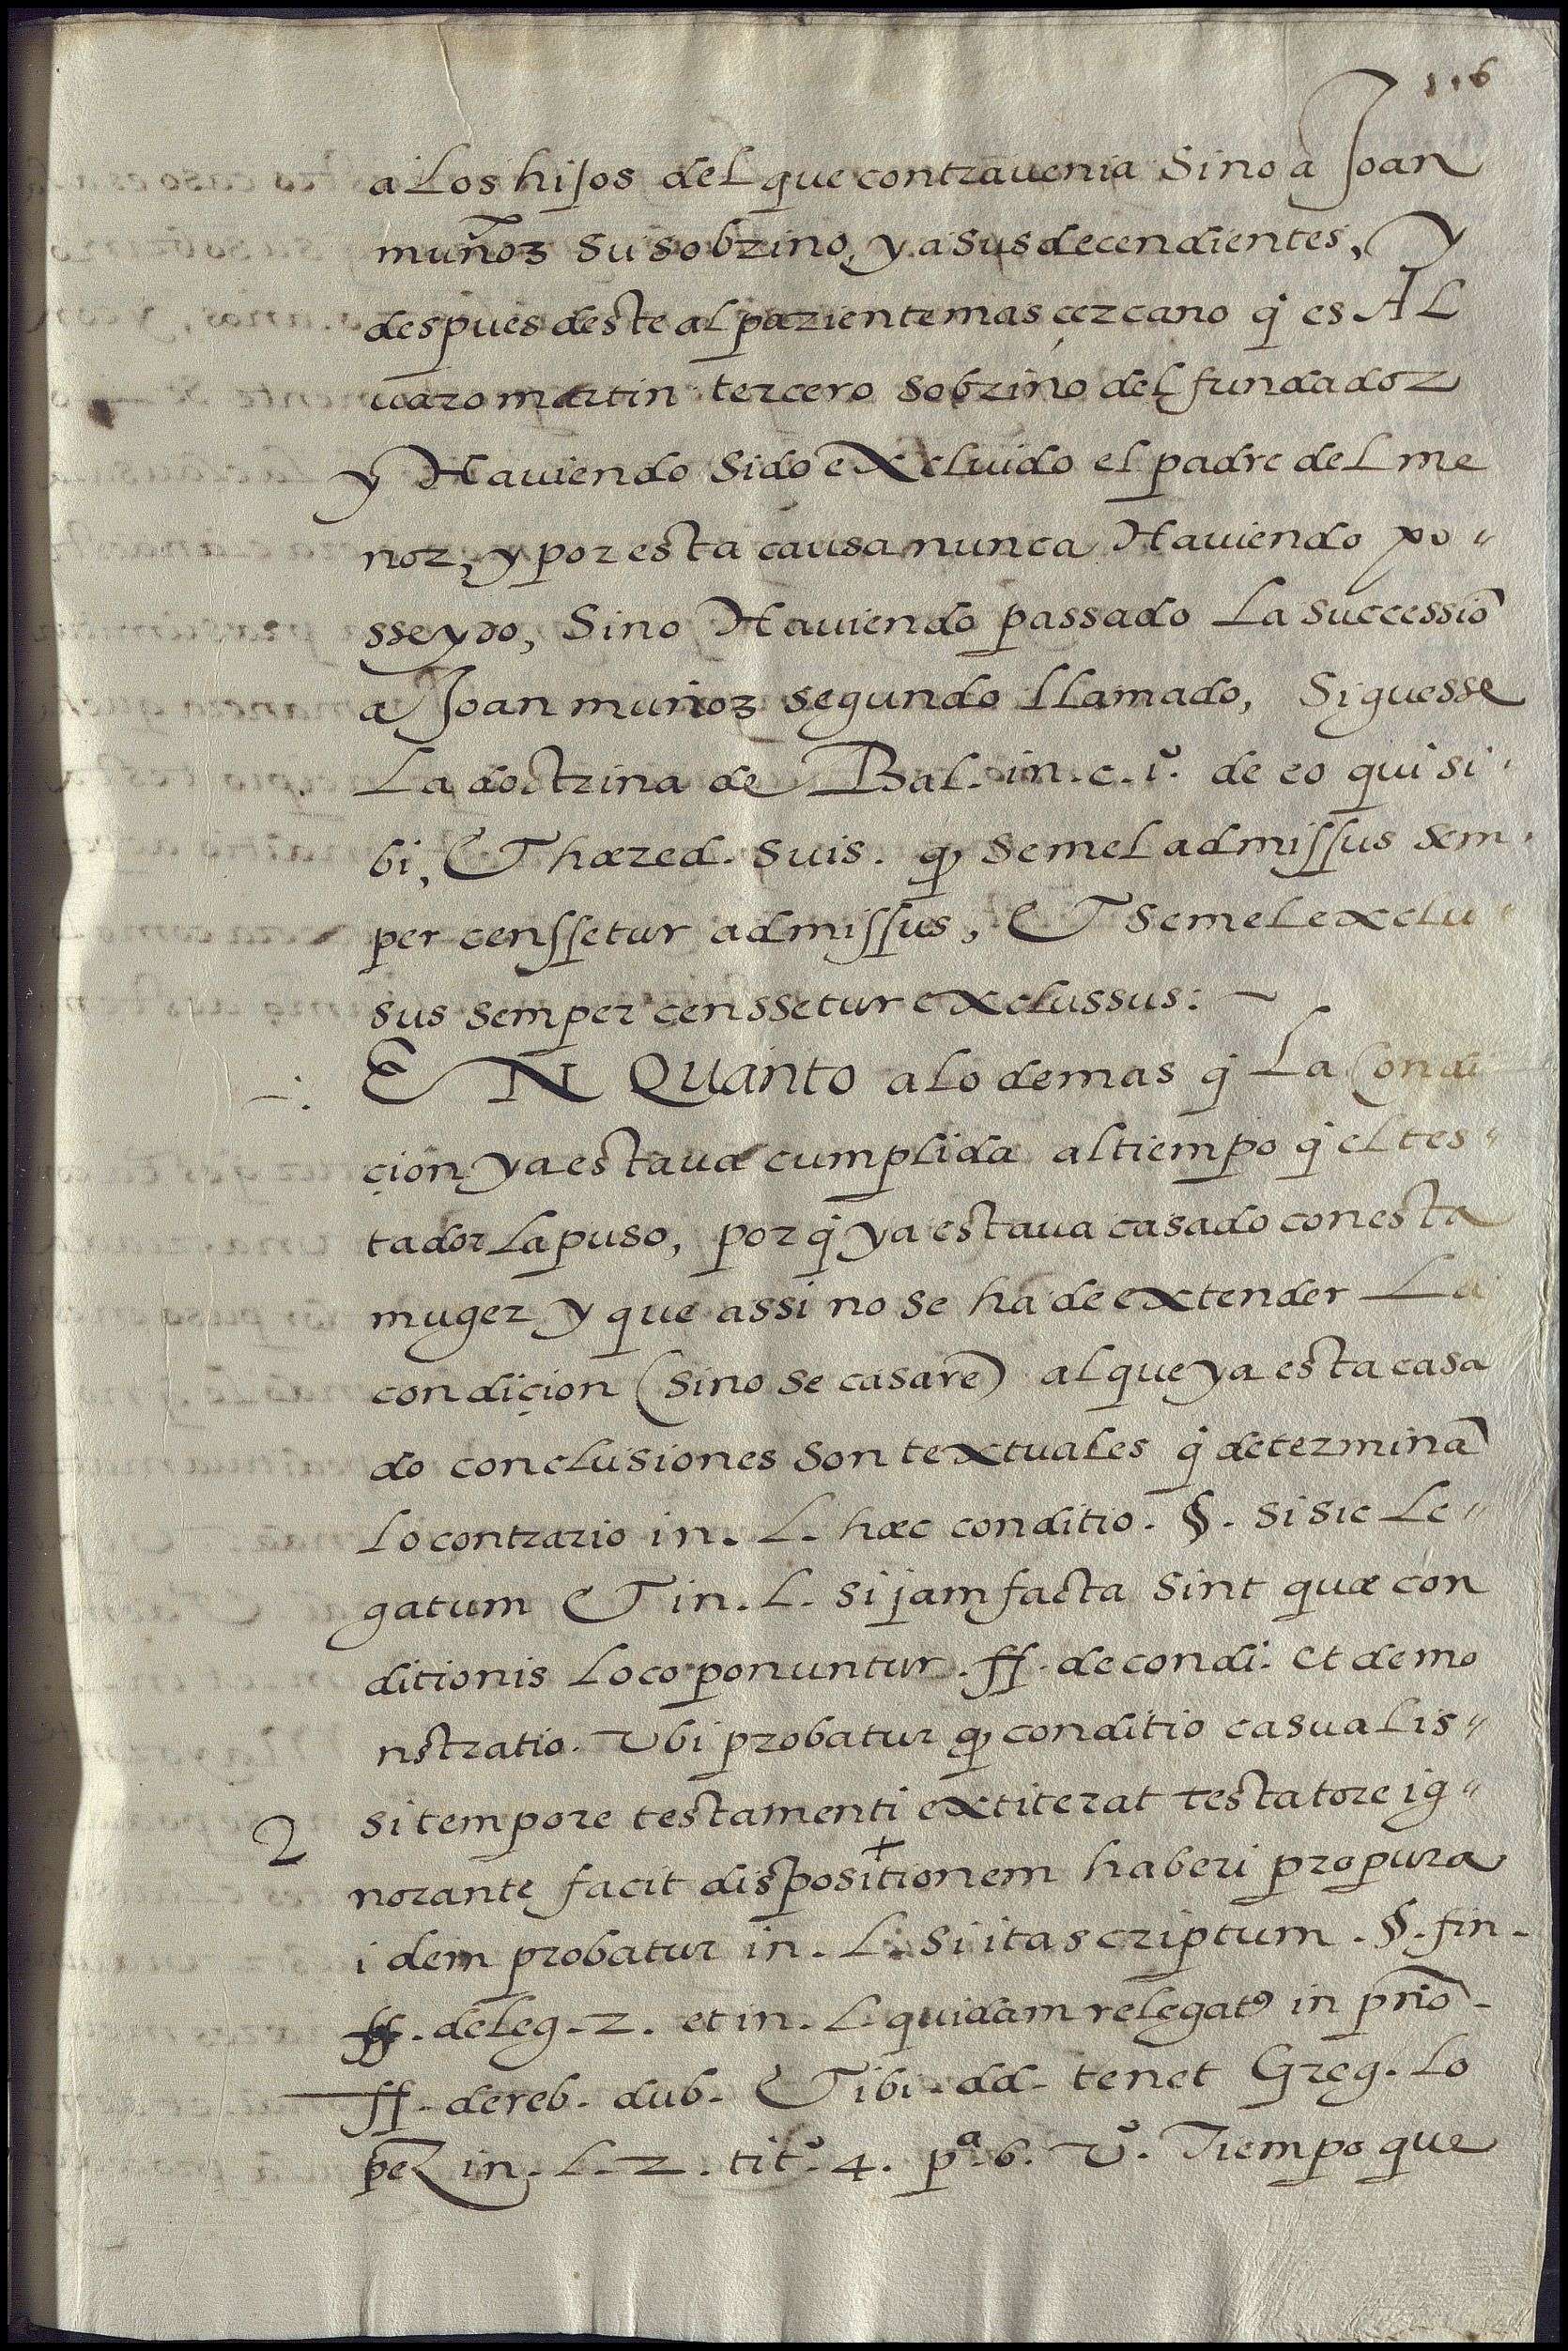 116
a Los hijos del que contravenia Sino a Joan
muñoz Su sobrino, y a sus decendientes, Y
despues deste al pariente mas çercano q̃ es AL
uaro martin tercero sobrino del fundador
y Haviendo Sido eXcluido el padre del me
nor, y por esta causa nunca Haviendo po-
sseydo, Sino Haviendo passado La Successiõ
a Joan muñoz segundo llamado, Siguesse
La doctrina de Bal. in. c. 1º. de eo qui si-
bi, ET hæred. suis. ꝙ semel admissus sem-
per censsetur admissus, ET semel exclu-
sus semper censsetur exclussus: ~
EN QUANTO a lo demas q̃ La Condi
çion ya estava cumplida al tiempo q̃ el tes-
tador La puso, por q̃ ya estava casado con esta
muger y que assi no se ha de extender La
condiçion (sino se casare) al que ya esta casa
do conclusiones Son textuales q̃ determinã
Lo contrario in. L. hæc conditio. §. si sic Le-
gatum ET in. L. si jam facta Sint quæ con
ditionis Loco ponuntur. ff. de condi. et demo
nstratio. Ubi probatur ꝙ conditio casualis-
2 si tempore testamenti extiterat testatore ig-
norante facit dispositionem + haberi pro pura
idem probatur in. L. Si ita scriptum. §. fin.
ff. de leg. 2. et in. L. quidam relegatꝰ in prio.
ff. de reb. dub. ET ibi. dd. tenet Greg. Lo
pez in. L. 2. titº. 4. pª. 6. vº. Tiempo que